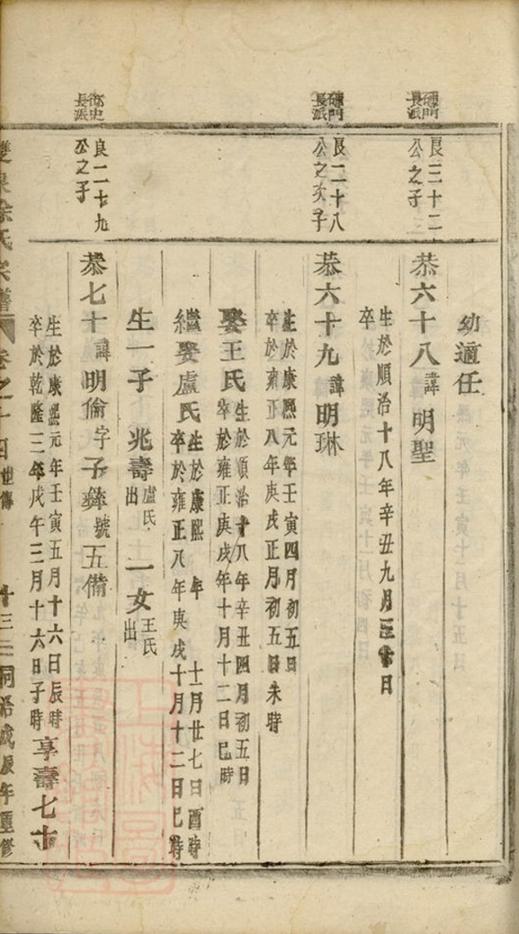 幼適任
磻門長派
良三十二公之子
恭六十八諱明聖
生於順治十八年辛丑九月三十日
卒
磻門長派
良二十八公之次子
恭六十九諱明琳
生於康熙元年壬寅四月初五日
卒於雍正八年庚戌正月初五日未時
娶王氏生於順治十八年辛丑四月初五日
卒於雍正庚戌年十月十二日巳時
繼娶盧氏生於康熙 年 十一月廿七日酉時
卒於雍正八年庚戌十月十二日巳時
生一子兆壽盧氏出 一女王氏出
長派
良二十九公之子
恭七十諱明倫字子彝號五備
生於康熙元年壬寅五月十六日辰時
卒於乾隆三年戊午三月十六日子時享壽七十
雙泉徐氏宗譜 卷之 世傳 十三 同治戊辰年重修